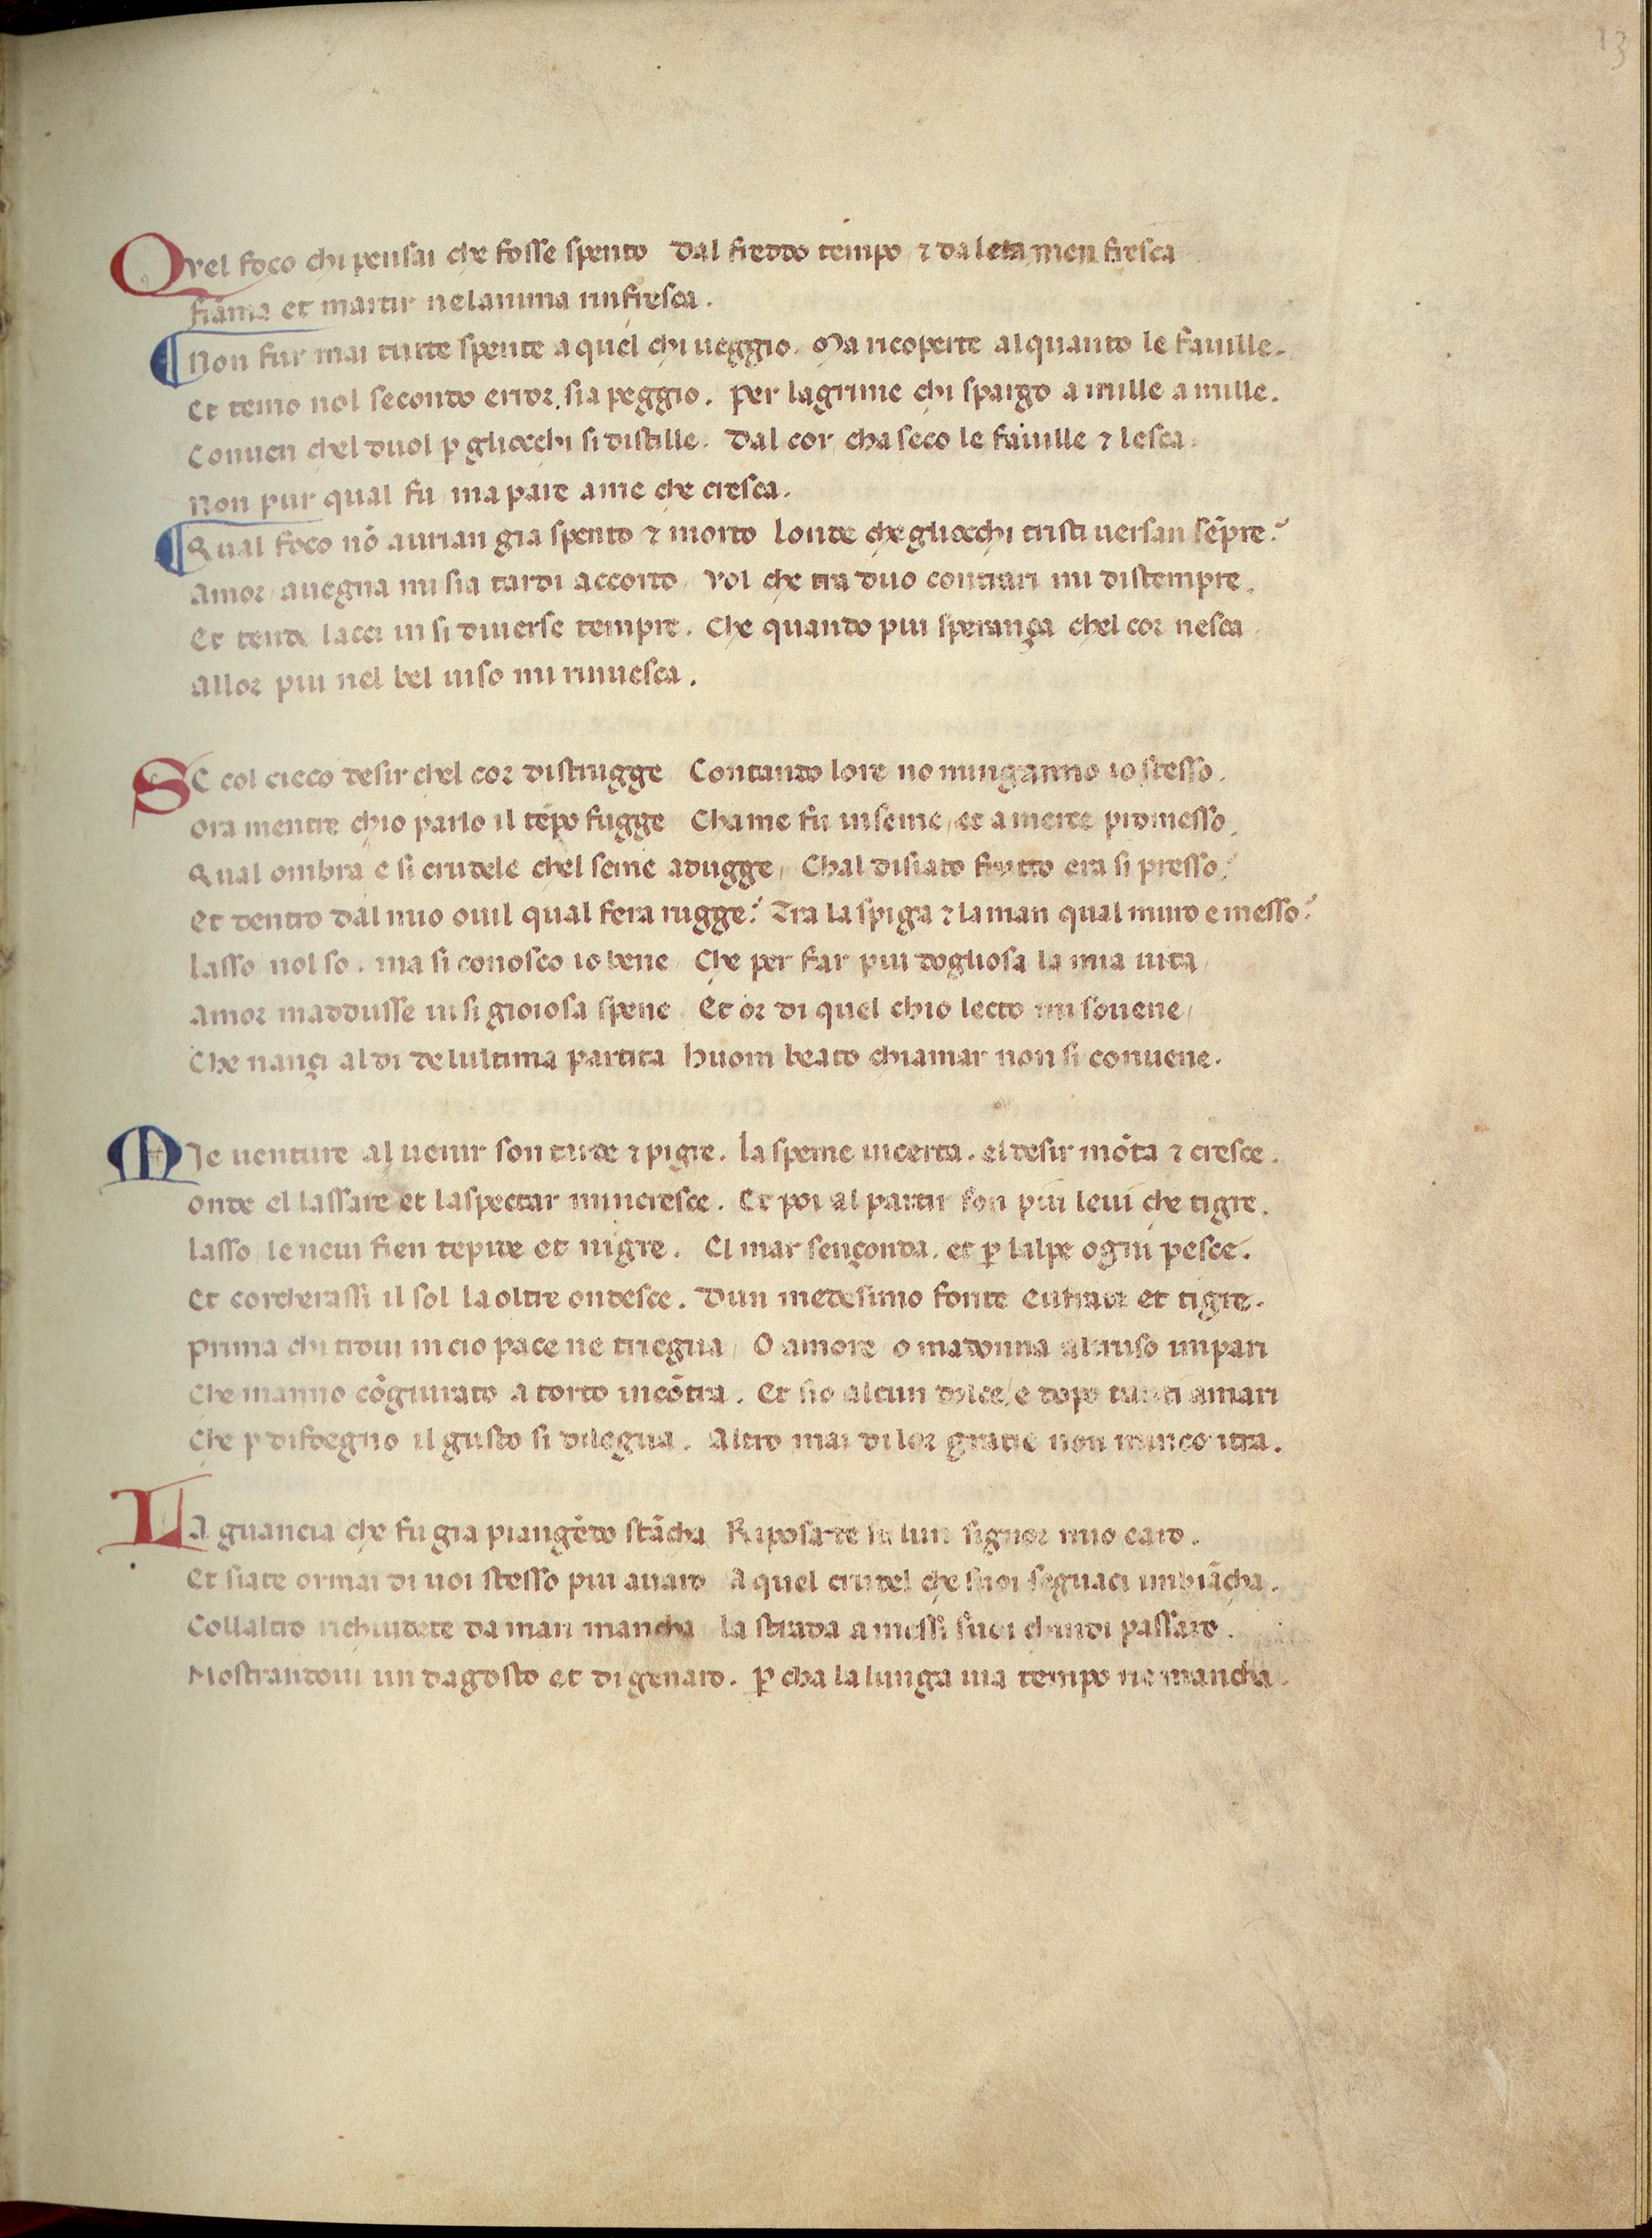 13
Qvel foco chi pensai che fosse spento Dal freddo tempo ⁊ da leta men fresca
fiāma et martir nelanima rinfresca.
Non fur mai tutte spente a quel chi ueggio. Ma ricoperte alquanto le fauille.
Et temo nol secondo error sia peggio. Per lagrime chi spargo a mille a mille.
Conuen chel duol ꝑ gliocchi si distille. Dal cor cha seco le fauille ⁊ lesca.
Non pur qual fu ma pare ame che cresca.
Qual foco nō aurian gia spento ⁊ morto Londe che gliocchi tristi uersan sēpre?
Amor auegna mi sia tardi accorto Vol che tra duo contrari mi distempre.
Et tende lacci in si diuerse tempre. Che quando piu sperança chel cor nesca
Allor piu nel bel uiso mi rinuesca.
Se col cieco desir chel cor distrugge Contando lore no minganno io stesso.
Ora mentre chio parlo il tēpo fugge Chame fu inseme et a merce promesso.
Qual ombra e si crudele chel seme adugge, Chal disiato frutto era si presso?
Et dentro dal mio ouil qual fera rugge? Tra la spiga ⁊ la man qual muro e messo?
Lasso nol so. ma si conosco io bene, Che per far piu dogliosa la mia uita,
Amor maddusse in si gioiosa spene. Et or di quel chio lecto mi souene,
Che nançi al di delultima partita huom beato chiamar non si conuene.
Mje venture al uenir son tarde ⁊ pigre. La speme incerta. el desir mōta ⁊ cresce.
Onde el lassare et laspectar mincresce. Et poi al partir son piu leui che tigre.
Lasso le neui fien tepide et nigre. El mar sençonda. et ꝑ lalpe ogni pesce.
Et corcherassi il sol la oltre ondesce. Dun medesimo fonte eufrate et tigre.
Prima chi troui in cio pace ne triegua, O amore o madonna altruso impari
Che manno cōgiurato a torto incōtra. Et sio alcun dolce, e dopo tanti amari
Che ꝑ disdegno il gusto si dilegua. Altro mai di lor gratie non mincontra.
La guancia che fu gia piangēdo stācha Riposate su lun signor mio caro.
Et siate ormai di uoi stesso piu auaro A quel crudel che suoi seguaci imbiācha.
Collaltro richiudete da man mancha la strada a messi suoi chindi passaro.
Mostrandoui un dagosto et di genaro. ꝑ cha la lunga uia tempo ne mancha.